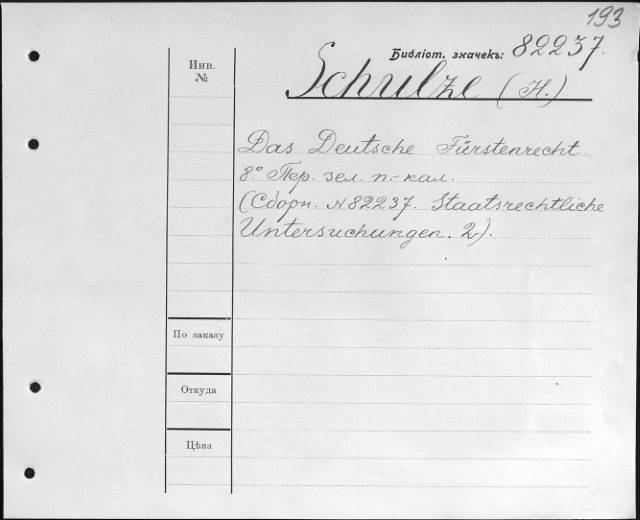 193
Библіот. значекъ: 82237.
Инв.
№
Schulze (H.)
Das Deutsche Fürstenrecht.
8.° Пер. зел. п.-кал.
(Сборн. №82237. Staatsrechtliche
Untersuchungen. 2).
По заказу
Откуда
Цѣна